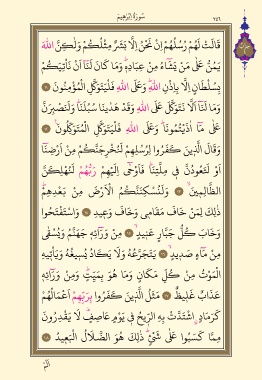 سُورَةُ اِبْرٰهِيمَ ٢٥٦
قَالَتْ لَهُمْ رُسُلُهُمْ اِنْ نَحْنُ اِلَّا بَشَرٌ مِثْلُكُمْ وَلٰكِنَّ اللّٰهَ
يَمُنُّ عَلٰى مَنْ يَشَٓاءُ مِنْ عِبَادِهِ وَمَا كَانَ لَنَٓا اَنْ نَأْتِيَكُمْ
بِسُلْطَانٍ اِلَّا بِاِذْنِ اللّٰهِ وَعَلَى اللّٰهِ فَلْيَتَوَكَّلِ الْمُؤْمِنُونَ ١١
وَمَا لَنَٓا اَلَّا نَتَوَكَّلَ عَلَى اللّٰهِ وَقَدْ هَدٰينَا سُبُلَنَا وَلَنَصْبِرَنَّ
عَلٰى مَٓا اٰذَيْتُمُونَا وَعَلَى اللّٰهِ فَلْيَتَوَكَّلِ الْمُتَوَكِّلُونَ ١٢
وَقَالَ الَّذِينَ كَفَرُوا لِرُسُلِهِمْ لَنُخْرِجَنَّكُمْ مِنْ اَرْضِنَٓا
اَوْ لَتَعُودُنَّ فِي مِلَّتِنَا فَاَوْحٰٓى اِلَيْهِمْ رَبُّهُمْ لَنُهْلِكَنَّ
الظَّالِمِينَ ١٣ وَلَنُسْكِنَنَّكُمُ الْاَرْضَ مِنْ بَعْدِهِمْ
ذٰلِكَ لِمَنْ خَافَ مَقَامِي وَخَافَ وَعِيدِ ١٤ وَاسْتَفْتَحُوا
وَخَابَ كُلُّ جَبَّارٍ عَنِيدٍ ١٥ مِنْ وَرَٓائِهِ جَهَنَّمُ وَيُسْقٰى
مِنْ مَٓاءٍ صَدِيدٍ ١٦ يَتَجَرَّعُهُ وَلَا يَكَادُ يُسِيغُهُ وَيَأْتِيهِ
الْمَوْتُ مِنْ كُلِّ مَكَانٍ وَمَا هُوَ بِمَيِّتٍ وَمِنْ وَرَٓائِهِ
عَذَابٌ غَلِيظٌ ١٧ مَثَلُ الَّذِينَ كَفَرُوا بِرَبِّهِمْ اَعْمَالُهُمْ
كَرَمَادٍ اشْتَدَّتْ بِهِ الرِّيحُ فِي يَوْمٍ عَاصِفٍ لَا يَقْدِرُونَ
مِمَّا كَسَبُوا عَلٰى شَيْءٍ ذٰلِكَ هُوَ الضَّلَالُ الْبَعِيدُ ١٨
اَلَمْ